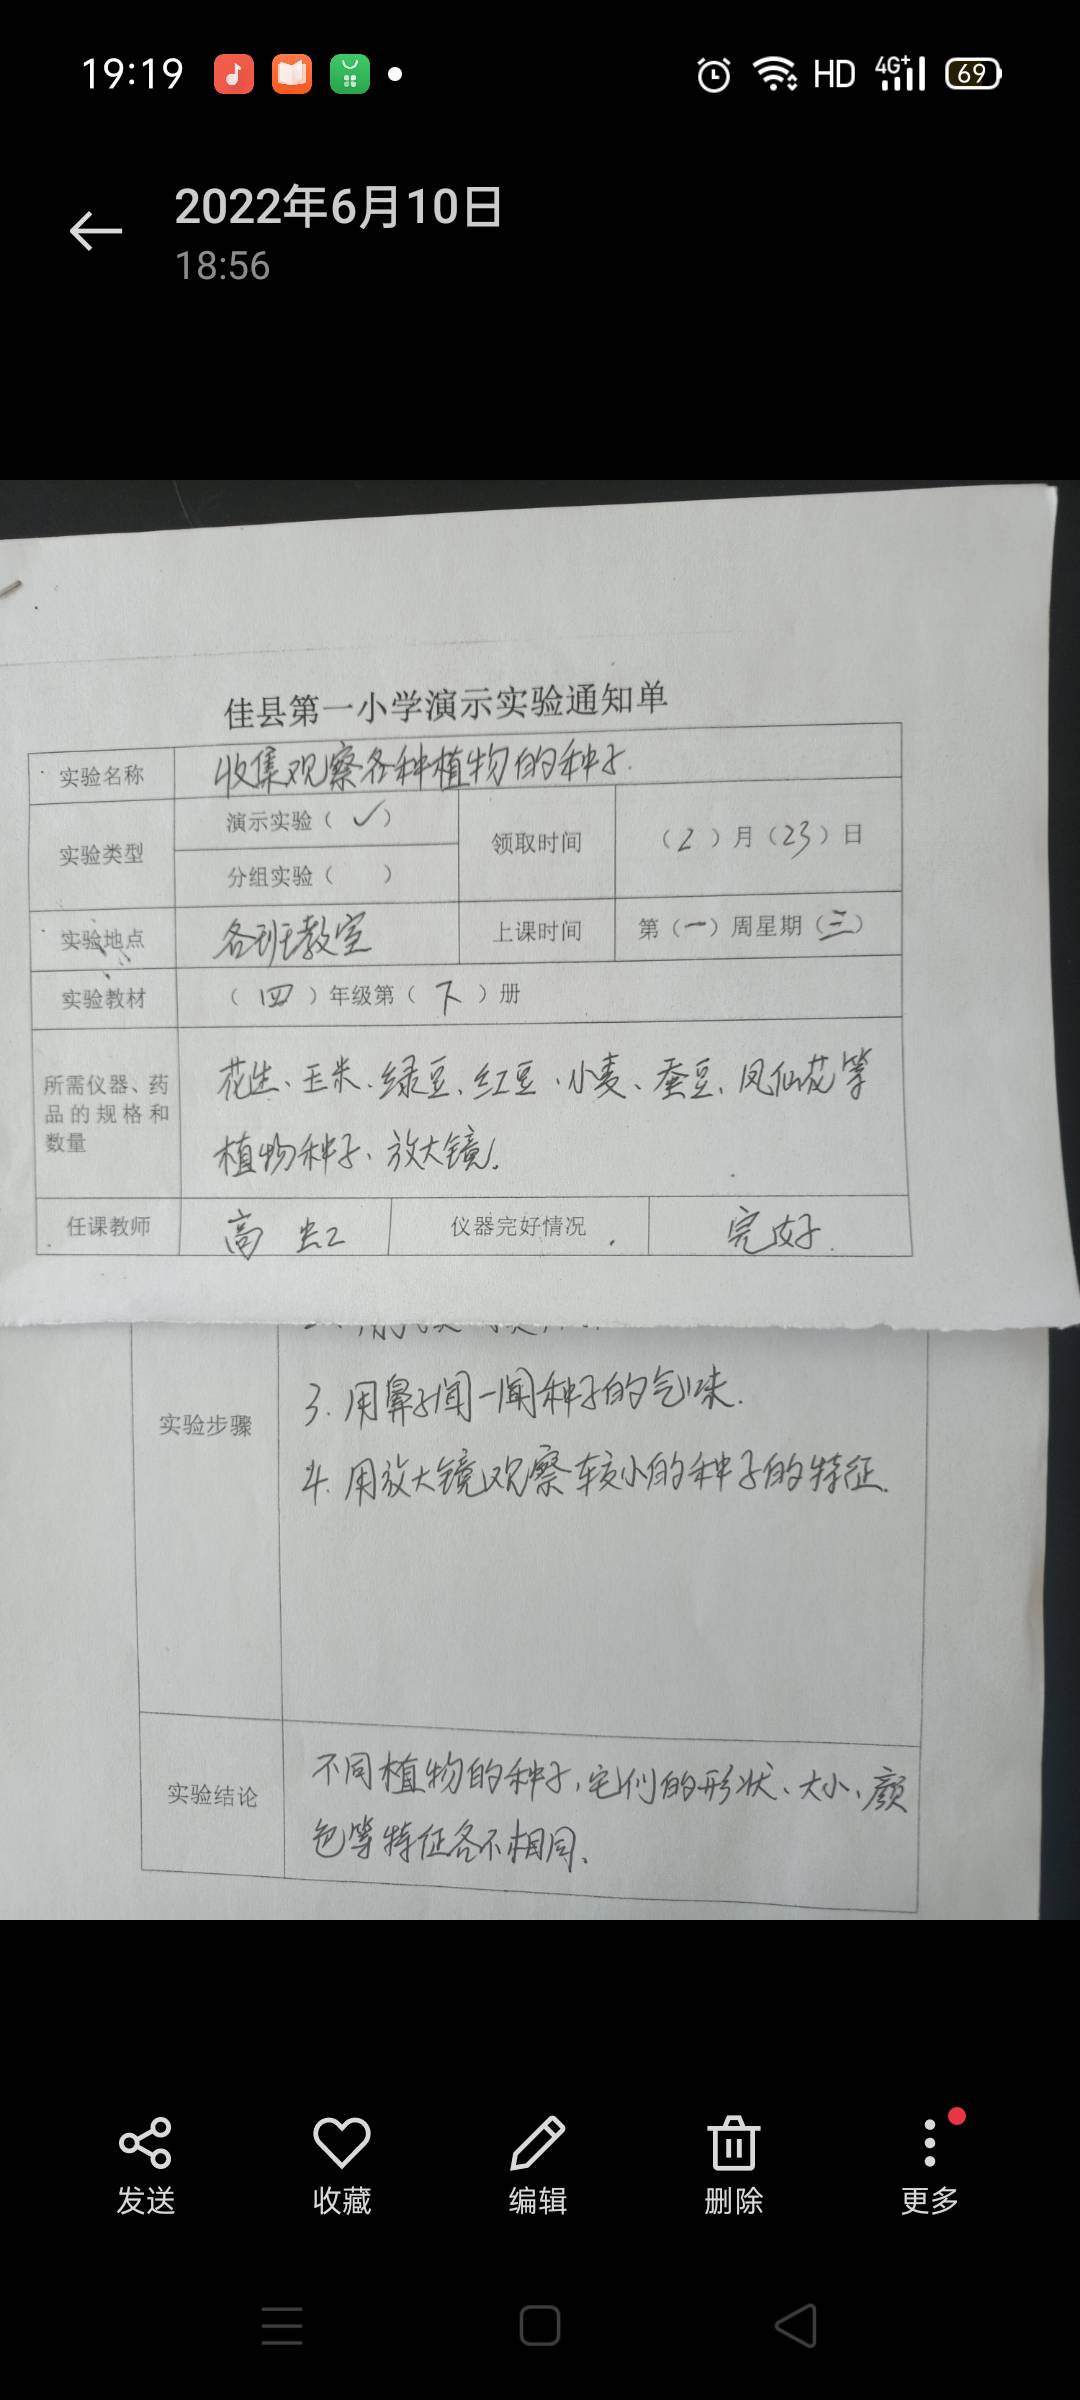 19:19 HD 4G+ 69
2022年6月10日
18:56
佳县第一小学演示实验通知单
实验名称 收集观察各种植物的种子.
实验类型 演示实验（ ✓ ） 领取时间 （2）月（23）日
分组实验（ ）
实验地点 各班教室 上课时间 第（一）周星期（三）
实验教材 （ 四 ）年级第（ 下 ）册
所需仪器、药
品的规格和
数量
花生、玉米、绿豆、红豆、小麦、蚕豆、凤仙花等
植物种子、放大镜.
任课教师 高虹 仪器完好情况 完好.
3. 用鼻子闻一闻种子的气味.
实验步骤
4. 用放大镜观察较小的种子的特征.
实验结论
不同植物的种子,它们的形状、大小、颜
色等特征各不相同.
发送 收藏 编辑 删除 更多